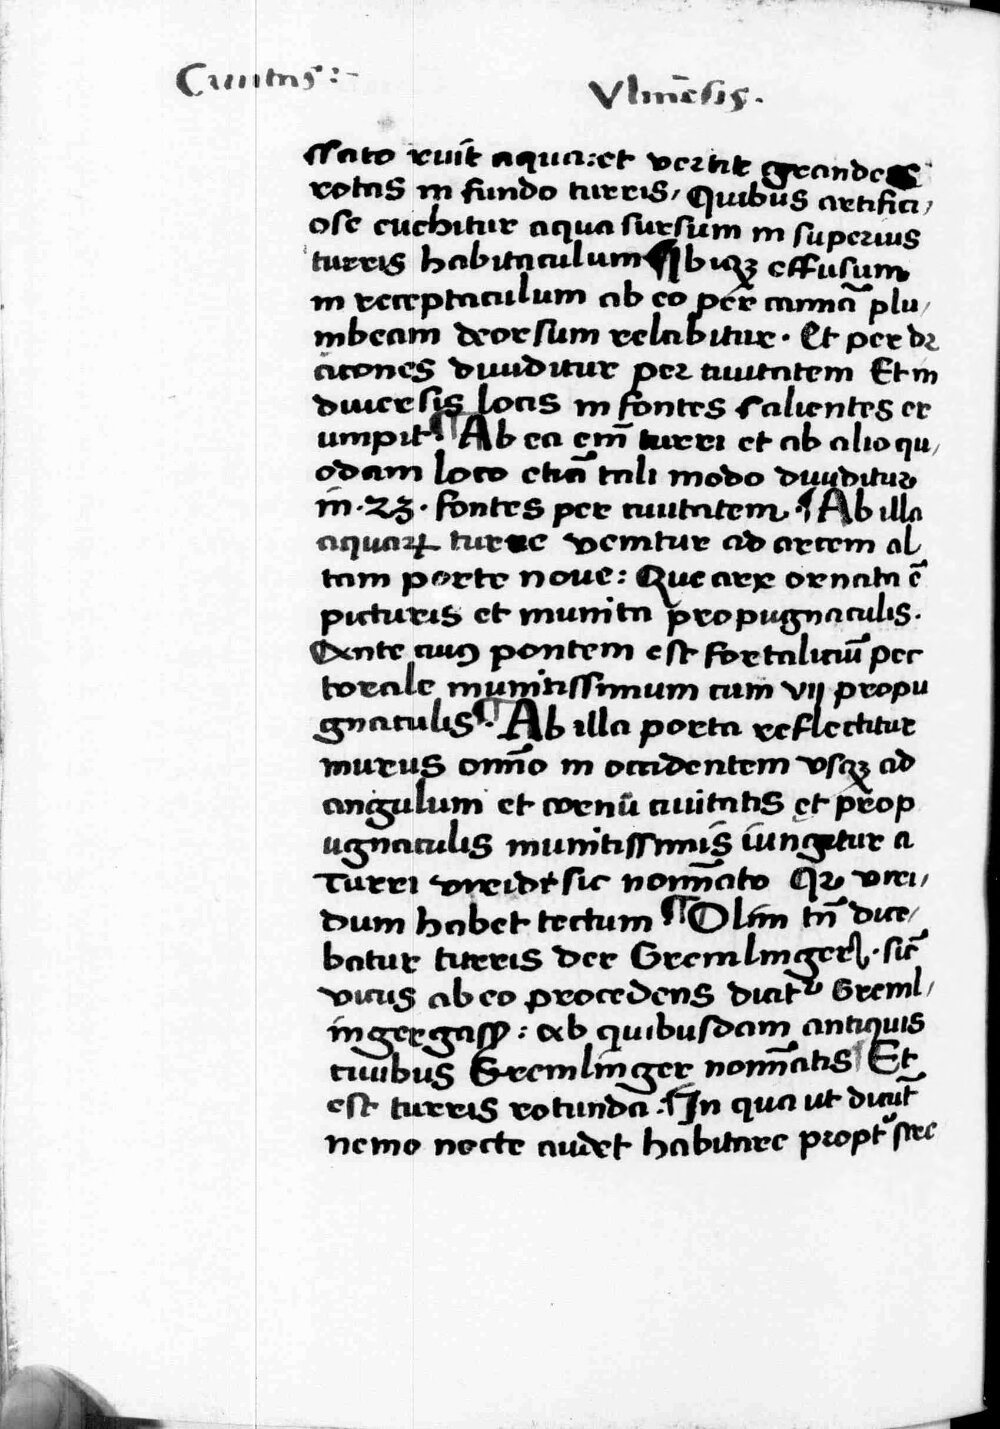 Ciuitas :-
Vlmēsis.
ssato ruit̄ aqua: et vertit grandes
rotas in fundo turris, Quibus artifici,
ose euehitur aqua sursum in superius
turris habitaculum ¶ Ibiqꝫ effusum
in receptaculum ab eo per cannā plu,
mbeam deorsum relabitur. Et per dr
acones diuiditur per ciuitatem Et in
diuersis locis in fontes salientes er
umpit ¶ Ab ea em̄ turri et ab alio qu,
odam loco etiā tali modo diuiditur
in .23. fontes per ciuitatem. ¶ Ab illa
aquaꝝ turre venitur ad arcem al
tam porte noue: Que arx ornata ē
picturis et munita propugnaculis.
Ante cuiꝯ pontem est fortaliciū pec
torale munitissimum cum vij propu
gnaculis ¶ Ab illa porta reflectitur
murus om̄o in occidentem vsqꝫ ad
angulum et cornū ciuitatis et prop
ugnaculis munitissimis iungitur a
Turri viride sic nom̄ato Qꝛ viri,
dum habet tectum ¶ Olim tn̄ dice,
batur turris der Gremlinger. sic̄
vicus ab eo procedens dicitᷣ Greml,
ingergass: ab quibusdam antiquis
ciuibus Gremlinger nom̄atis ¶ Et
est turris rotunda. ¶ In qua ut dicūt
nemo nocte audet habitare proptᷣ stre